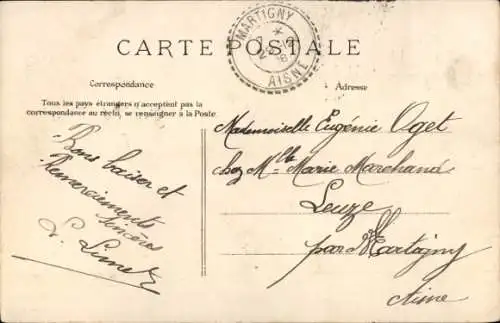 MARTIGNY
AISNE
CARTE POSTALE
Correspondance
Adresse
Tous les pays étrangers n'acceptent pas la
correspondance au recto, se renseigner à la Poste
Bons baiser et
Remerciements
sincères
Mademoiselle Eugénie Oget
chez Mlle Marie Marchand
Leuze
par Martigny
Aisne